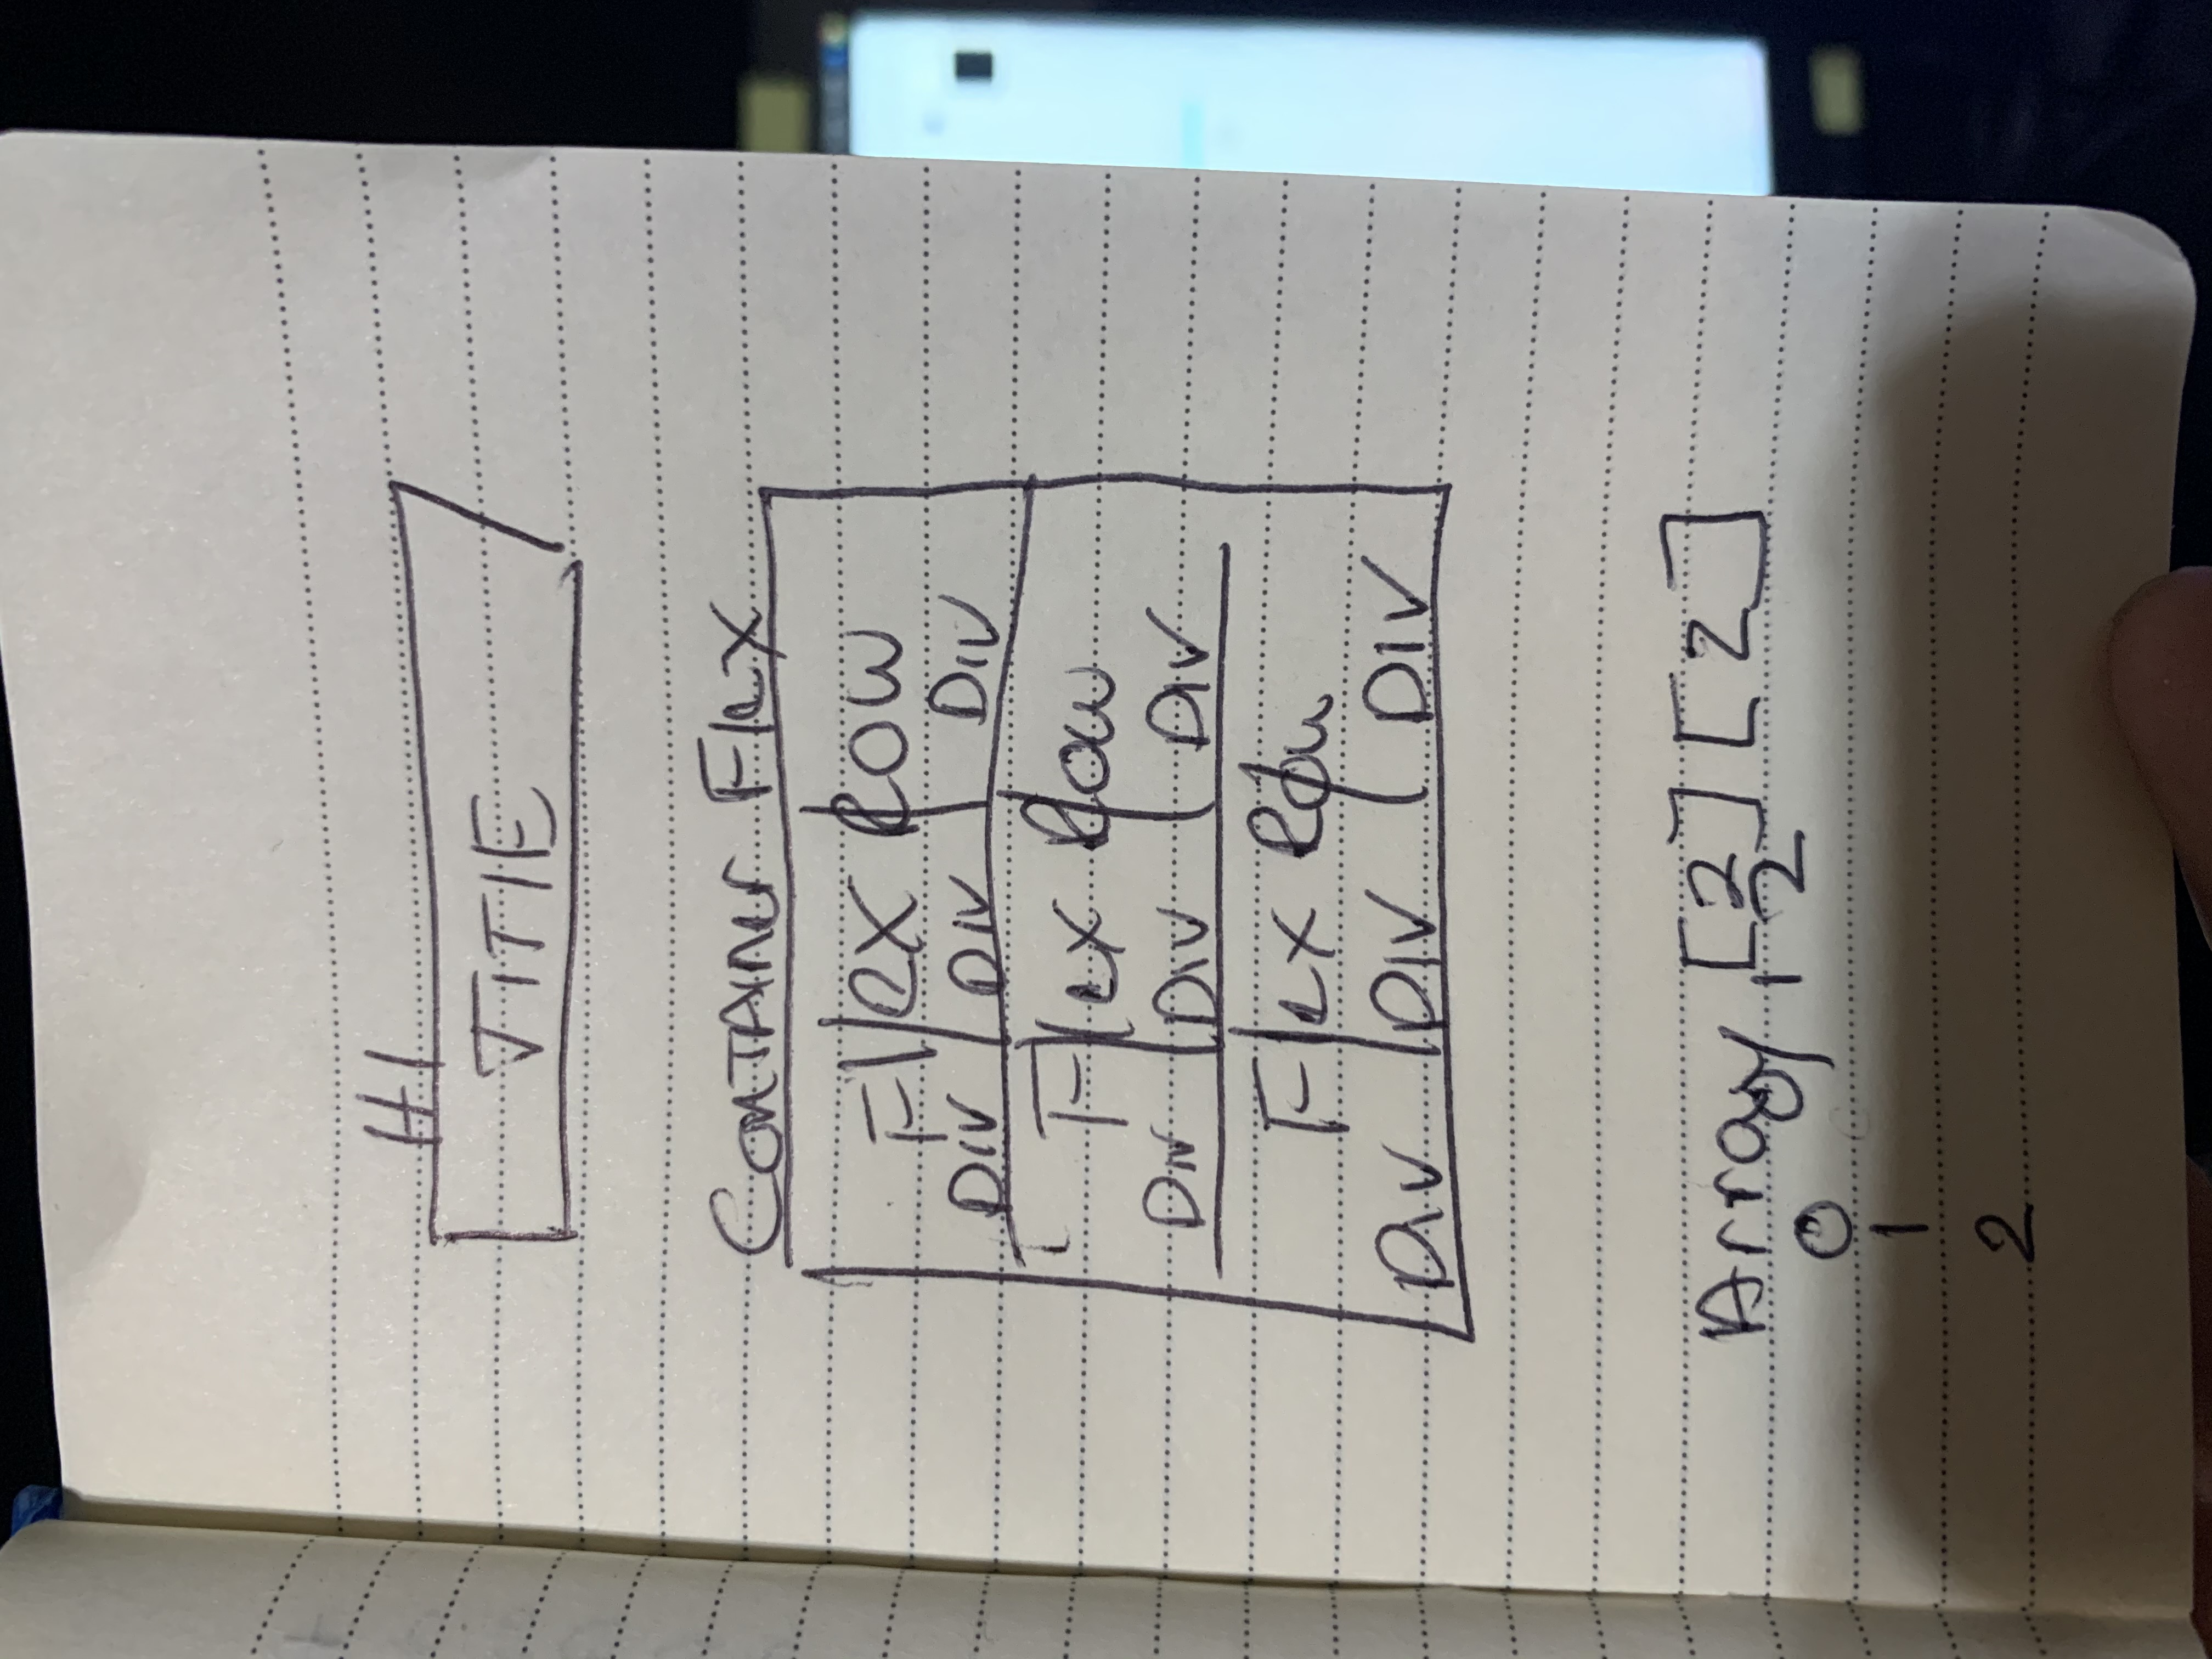 H1
TITlE
CONTAINer Flex
Flex ROW
DIV DIV DIV
Flex Row
DIV DIV DIV
Flex Row
DIV DIV DIV
Array [2] [2]
0 1 2
0
1
2